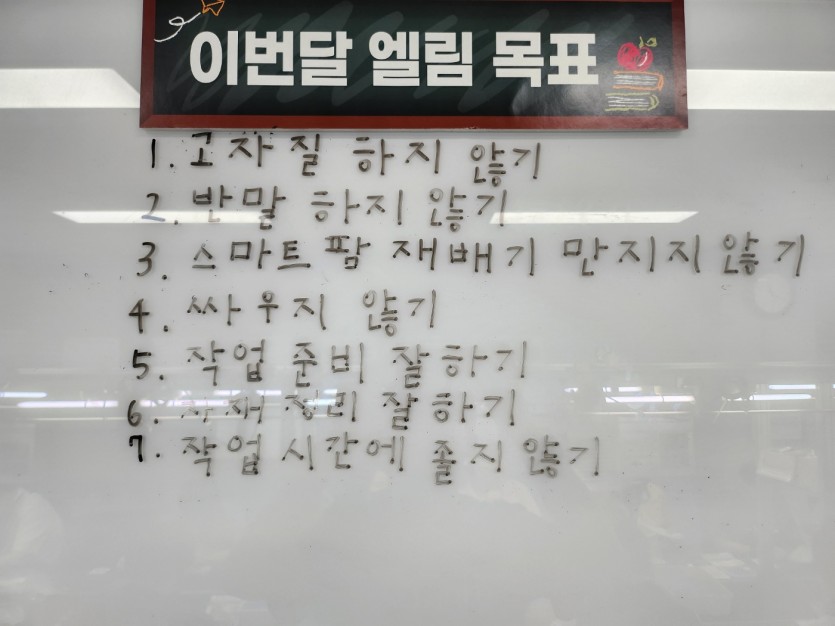 이번달 엘림 목표
1. 고자질 하지 않기
2. 반말 하지 않기
3. 스마트팜 재배기 만지지 않기
4. 싸우지 않기
5. 작업 준비 잘하기
6. 자재 정리 잘하기
7. 작업 시간에 졸지 않기